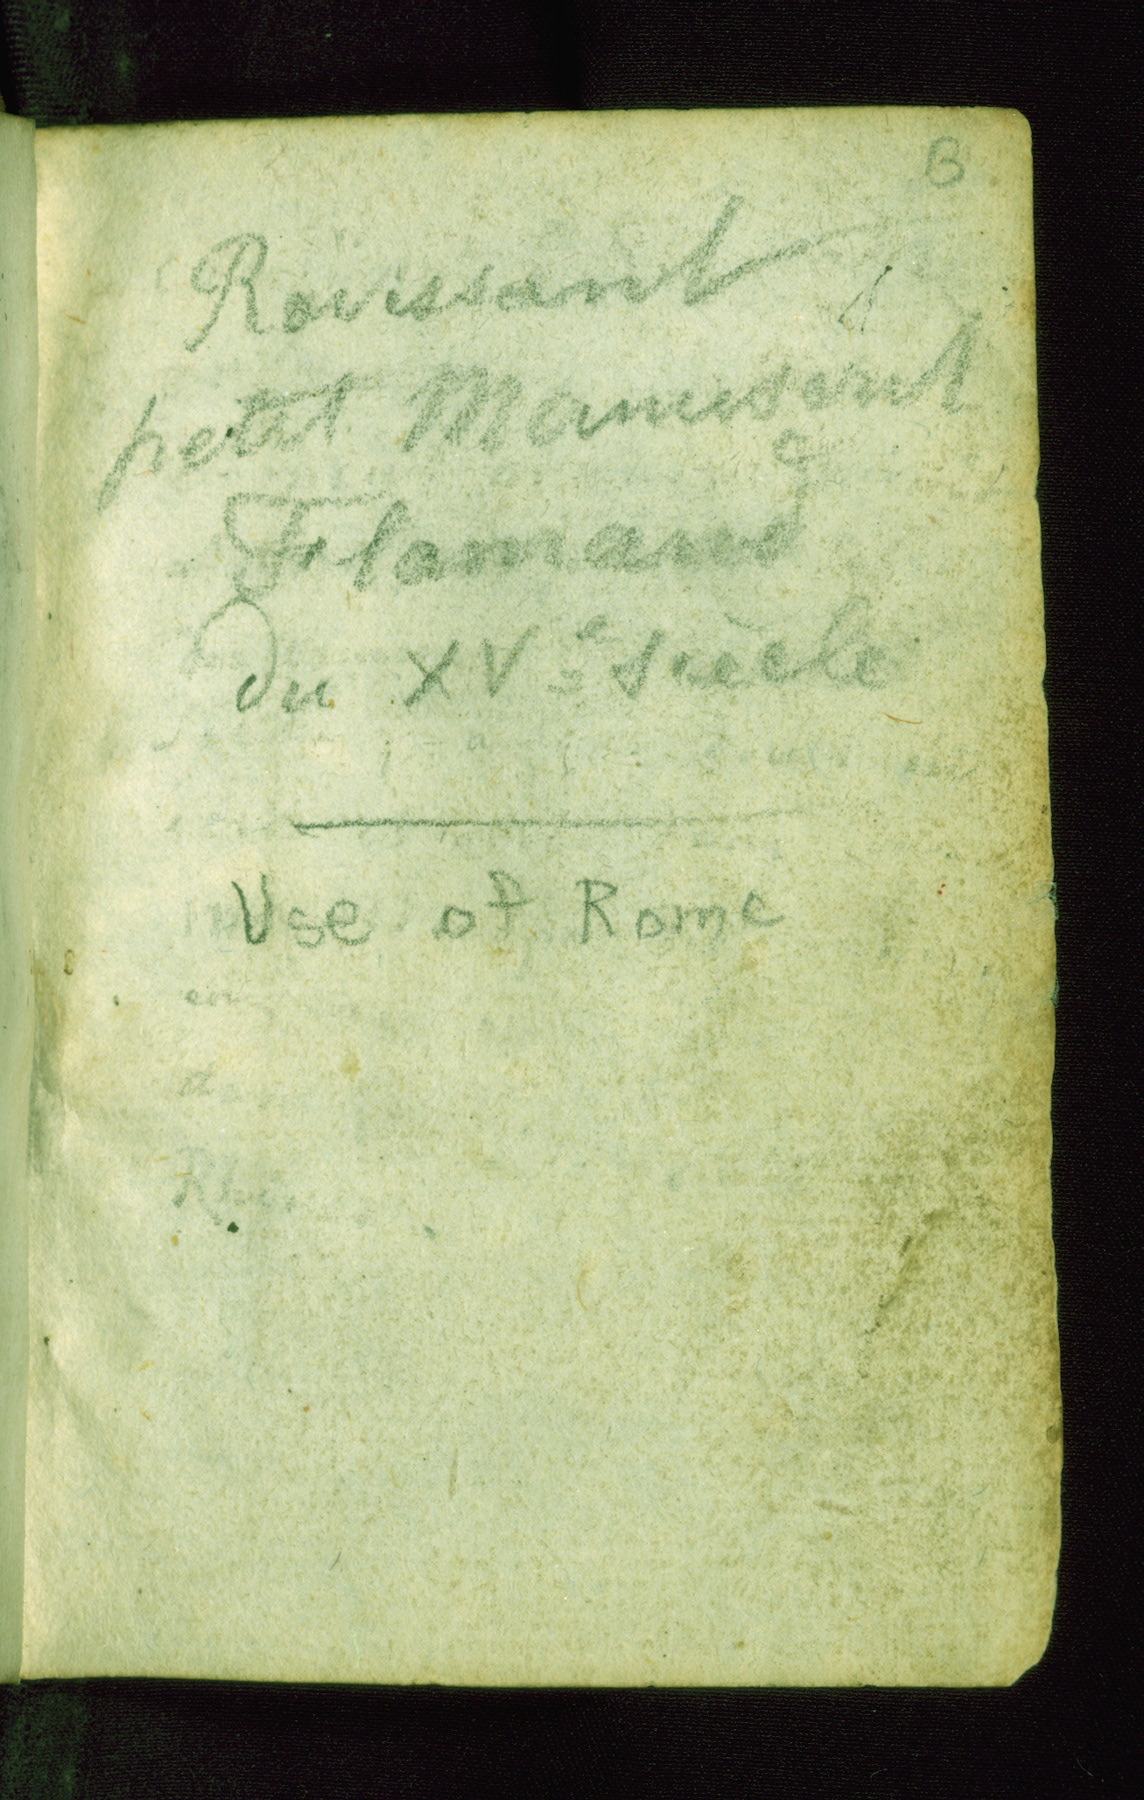 B
Ravissant
petit Manuscrit
Flamand
du XVe siècle
Use of Rome